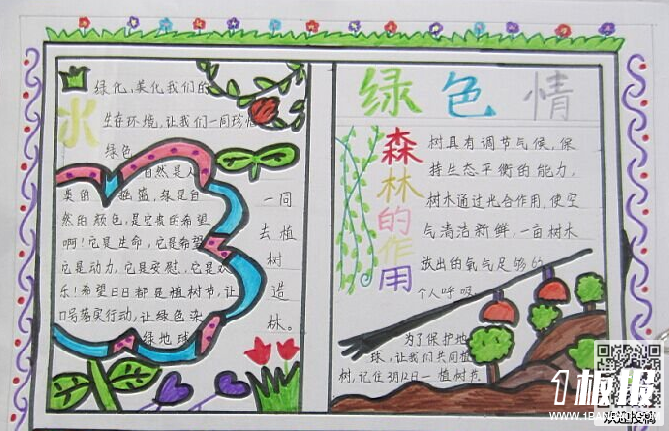 绿色情
绿化、美化我们的
生存环境,让我们一同珍惜
绿色
自然是人
类的摇篮,绿是自
然的颜色,是它表示希望
啊!它是生命,它是希望
它是动力,它是安慰,它是欢
乐!希望日日都是植树节,让
口号落实行动,让绿色染
绿地球
一同
去植
树
造
林。
森林的作用
树具有调节气候,保
持生态平衡的能力,
树木通过光合作用,使空
气清洁新鲜,一亩树木
放出的氧气足够
个人呼吸
为了保护地
球,让我们共同植
树,记住3月12日一植树节
1板报
WWW.1BANBAO.COM
欢迎投稿